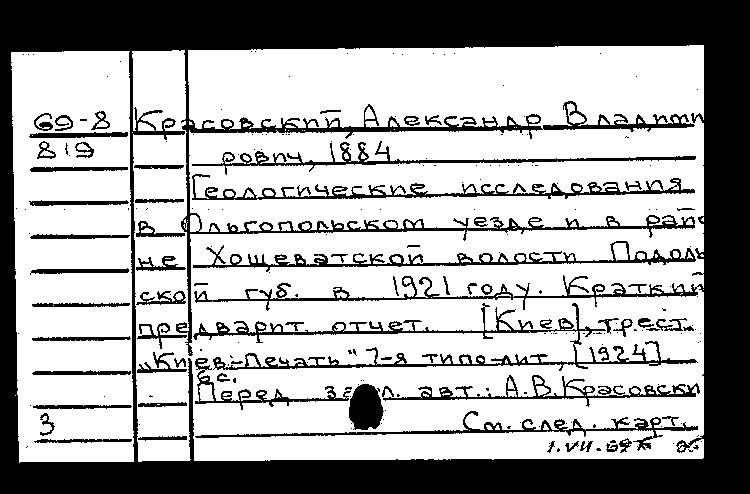 69-8 Красовский, Александр Владими
819 рович, 1884
Геологические исследования
в Ольгопольском уезде и в рай
не Хощеватской волости Подоль
ской губ. в 1921 году. Краткий
предварит. отчет. [Киев], трест.
„Киев-Печать" 7-я типо-лит, [1924].
6 с.
Перед авт.: А.В.Красовски
3 См. след. карт.